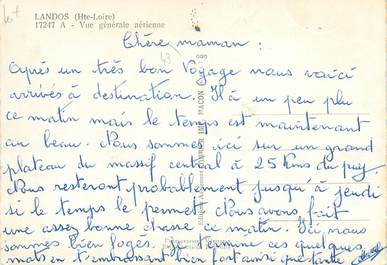 LANDOS (Hte-Loire)
17247 A - Vue générale aérienne
Chère maman :
Après un très bon voyage nous voici
arrivés à destination. Il a un peu plu
ce matin mais le temps est maintenant
au beau. Nous sommes ici sur un grand
plateau du massif central à 25 Kms du puy.
Nous resteront probablement jusqu'à jeudi
si le temps le permet. Nous avons fait
une assez bonne chasse ce matin. Ici nous
sommes bien logés. Je termine ces quelques
mots en t'embrassant bien fort ainsi que tante